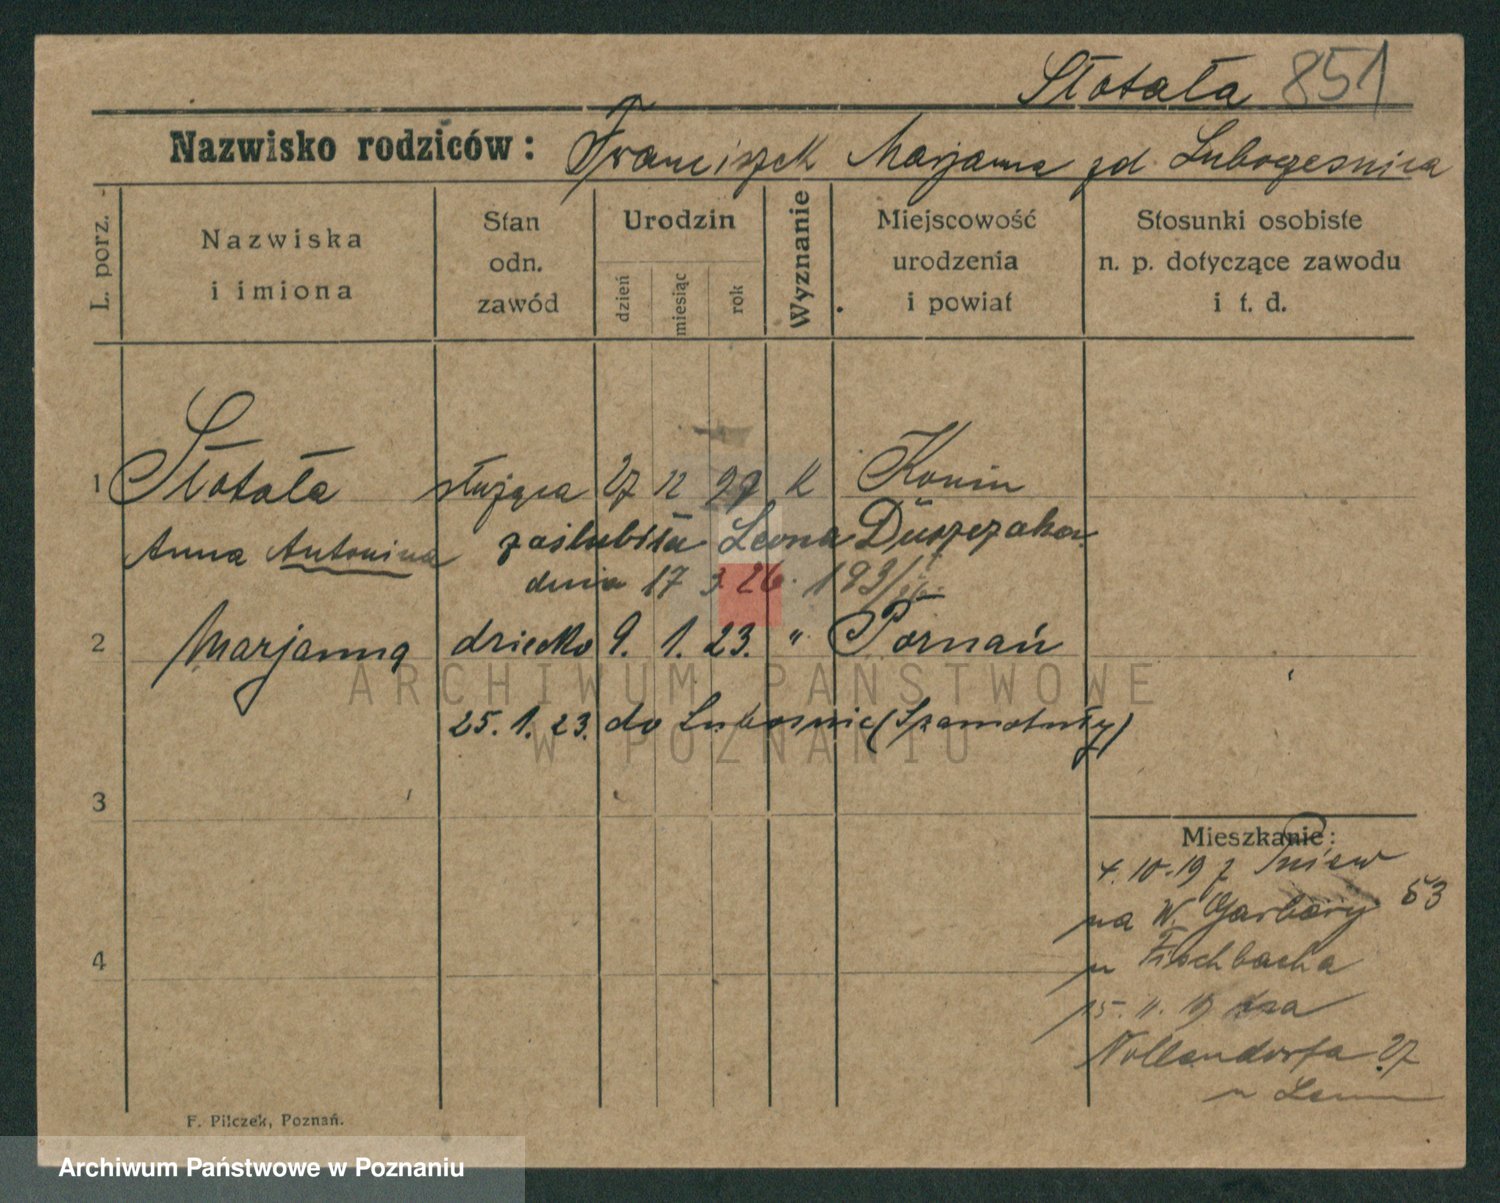 Słotała 851
Nazwisko rodziców: Franciszek Marjanna zd. Lubogesnica
L. porz.
Nazwiska
i imiona
Stan
odn.
zawód
Urodzin
dzień
miesiąc
rok
Wyznanie
Miejscowość
urodzenia
i powiat
Stosunki osobiste
n. p. dotyczące zawodu
i t. d.
1 Słotała służąca 27 12 99 k Konin
Anna Antonina zaślubiła Leona Duszczaka
dnia 17 3. 26. 193/
2 Marjanna dziecko 9. 1. 23. " Poznań
25. 1. 23. do Lubosnic (Szamotuły)
3
4
Mieszkanie:
4. 10. 19 z Pniew
na W. Garbary 53
u Fischbacha
15. 11. 19
Nollendorfa 27
u
F. Pilczek, Poznań.
ARCHIWUM PAŃSTWOWE
W POZNANIU
Archiwum Państwowe w Poznaniu